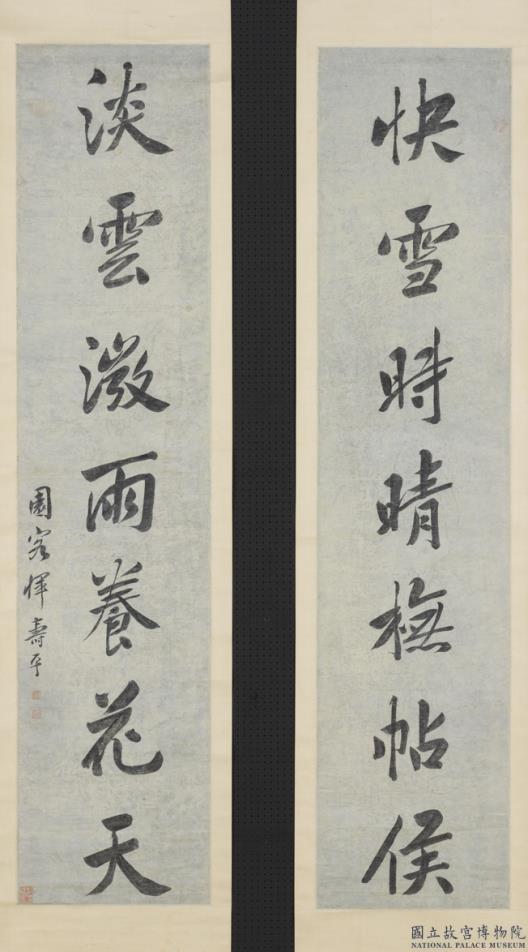 快雪時晴橅帖侯
淡雲微雨養花天
園客惲壽平
國立故宮博物院
NATIONAL PALACE MUSEUM